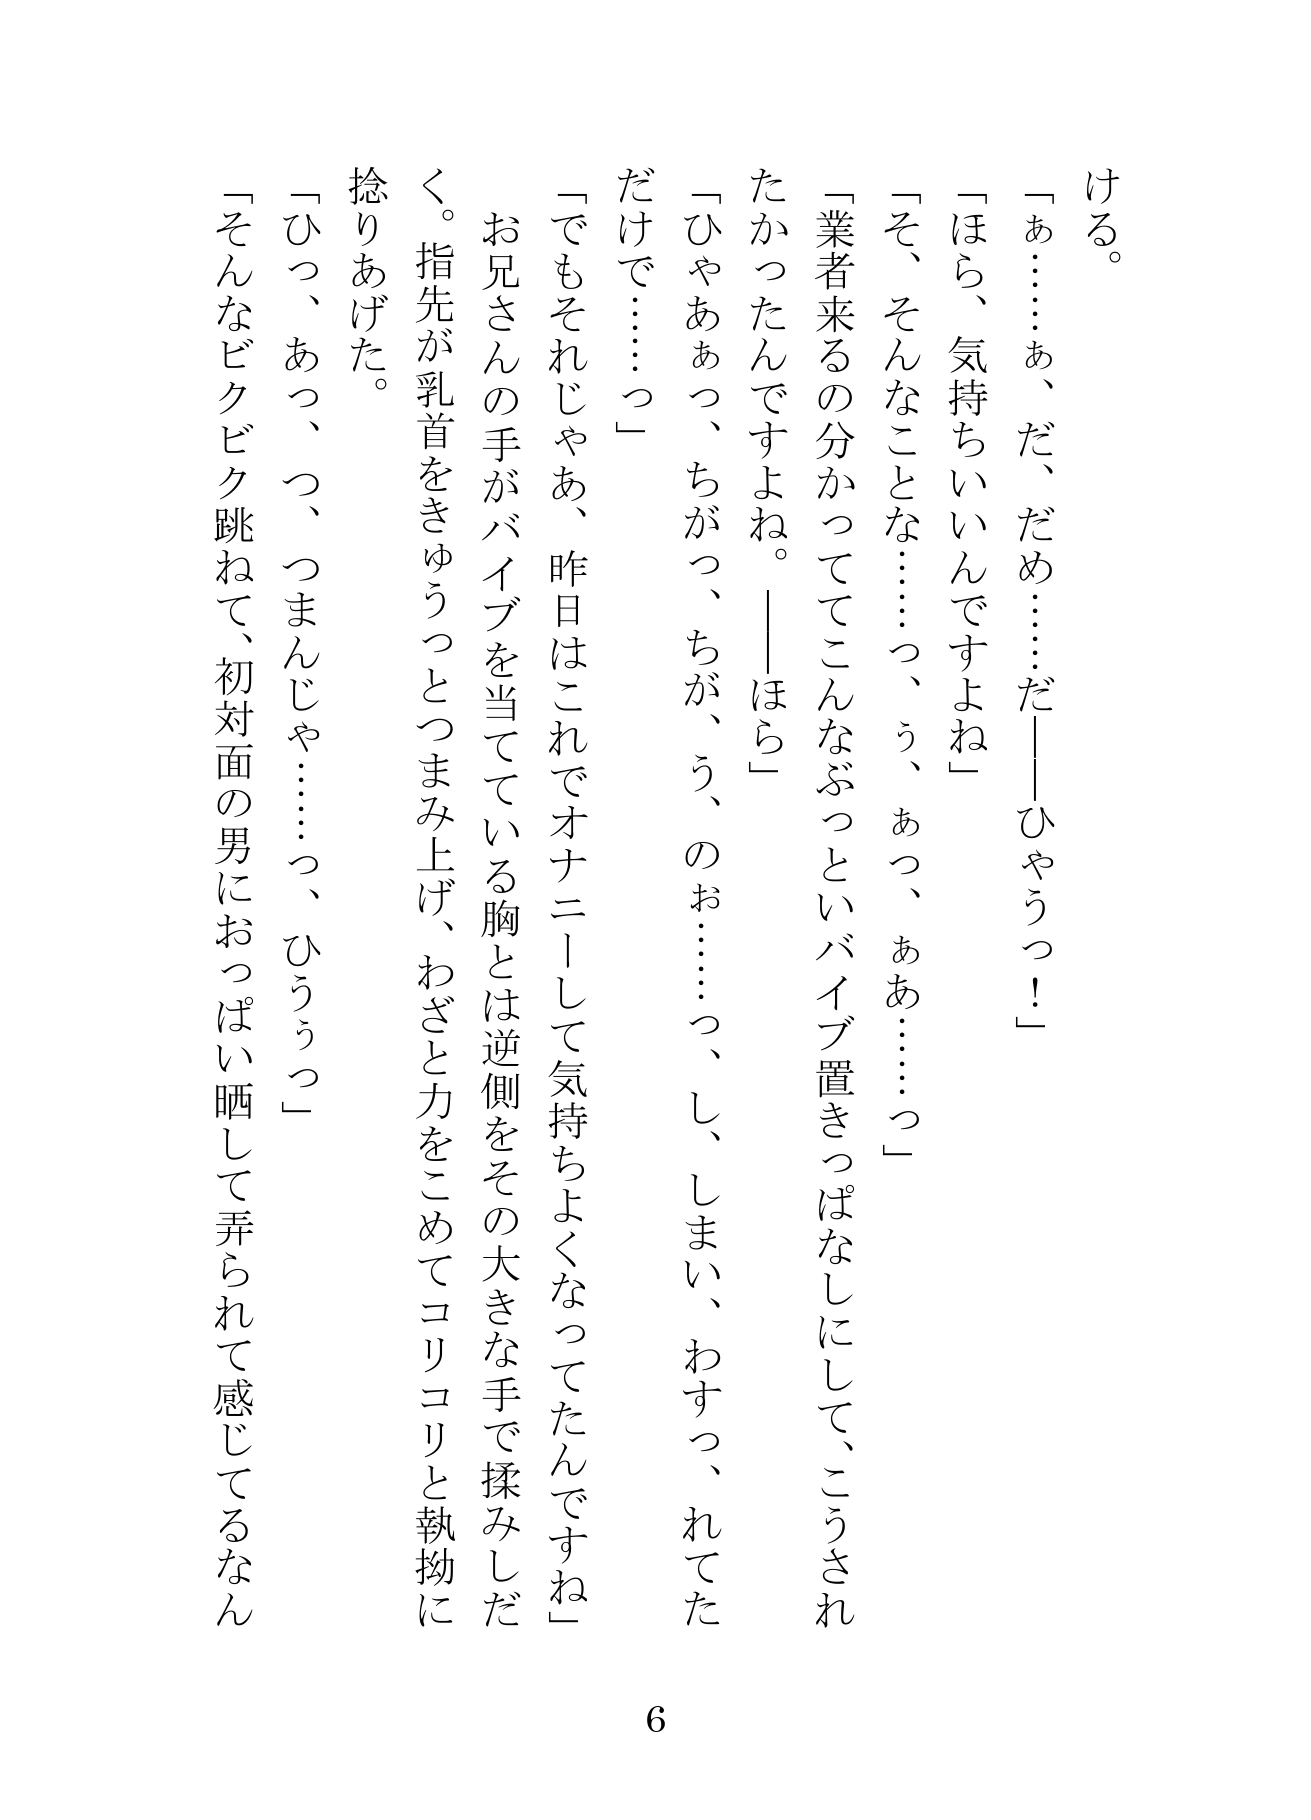 ける。
「ぁ……ぁ、だ、だめ……だ――ひゃうっ！」
「ほら、気持ちいいんですよね」
「そ、そんなことな……っ、ぅ、ぁっ、ぁあ……っ」
「業者来るの分かっててこんなぶっといバイブ置きっぱなしにして、こうされ
たかったんですよね。――ほら」
「ひゃあぁっ、ちがっ、ちが、う、のぉ……っ、し、しまい、わすっ、れてた
だけで……っ」
「でもそれじゃあ、昨日はこれでオナニーして気持ちよくなってたんですね」
　お兄さんの手がバイブを当てている胸とは逆側をその大きな手で揉みしだ
く。指先が乳首をきゅうっとつまみ上げ、わざと力をこめてコリコリと執拗に
捻りあげた。
「ひっ、あっ、つ、つまんじゃ……っ、ひうぅっ」
「そんなビクビク跳ねて、初対面の男におっぱい晒して弄られて感じてるなん
6